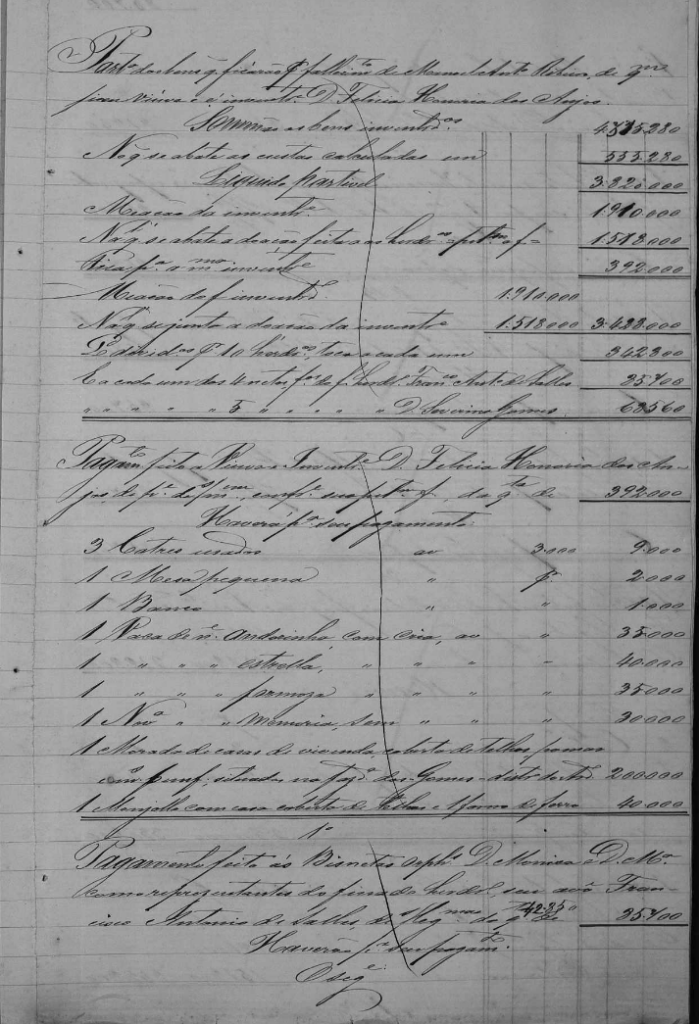 Part. dos bens q. ficarão p. fallecim.to de Manoel Ant.o de q.m
ficou viuva e é invent.e D. Felicia Honoria dos Anjos.
Sommão os bens invent.dos 4.375.280
No q. se abate as custas calculadas em 555.280
Liquido partivel 3.820.000
Meação da invent.e 1.910.000
Na q. se abate a doação feita aos herd.os 1.518.000
Fica p.a a m.ma invent.e 392.000
Meação do f. invent.do 1.910.000
Na q. se junta a doação da invent.e 1.518.000 3.428.000
Q. dividos p. 10 herd.os, toca a cada um 342.800
E a cada um dos 4 netos, f.os do f. herd.o Fran.co Ant.o de Salles 85.700
" " " " 5 " " " " " D. Severina Gomes 68.560
Pagam.to feito a Viuva e Invent.e D. Felicia Honoria dos An-
jos, da q.ta de 392.000
Haverá p.a seu pagamento:
3 Catres usados ao 3.000 9.000
1 Mesa pequena " p.r 2.000
1 Banco " " 1.000
1 Vaca de n.e Andorinha com cria, ao " 35.000
1 " " " estrella, " " " " 40.000
1 " " " formoza " " " " 35.000
1 Nov.a " " Memoria, sem " " " 30.000
1 Morada de casas de vivenda, coberta de telhas,
situadas na faz.a dos Gomes 200.000
1 Monjollo com casa coberta de telhas e forno de ferro 40.000
1º
Pagamento feito ás Bisnetas orph.s D. Monica e D. M.a
como representantes do finado herd.o, seu avô Fran-
cisco Antonio de Salles, da q.ta de 42.850 85.700
Haverão p.a seu pagam.to
O seg.e